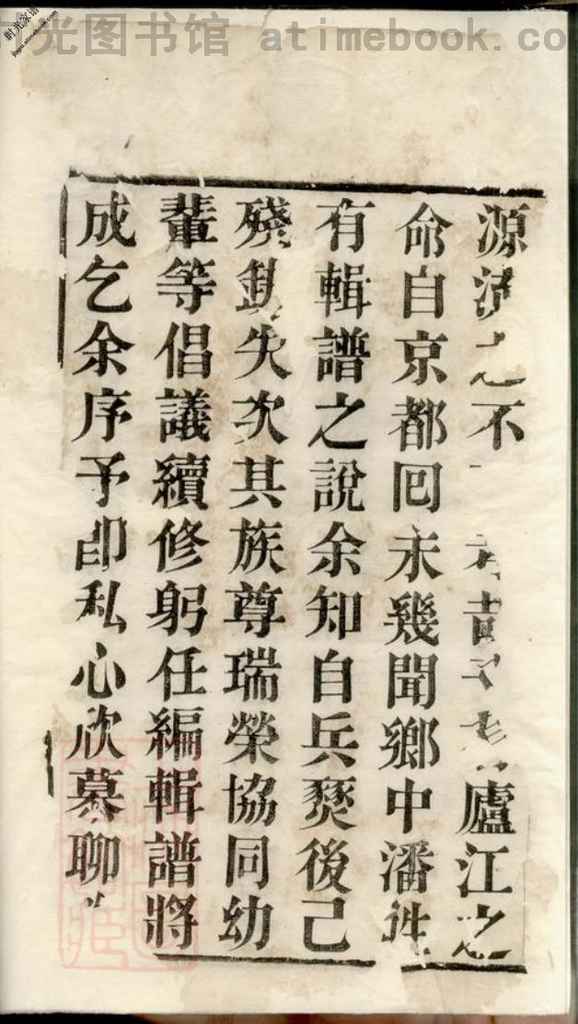 光图书馆 atimebook.co
源 不 廬江之
命自京都回未幾聞鄉中潘姓
有輯譜之說余知自兵燹後己
殘缺失次其族尊瑞榮協同幼
輩等倡議續修躬任編輯譜將
成乞余序予即私心欣慕聊